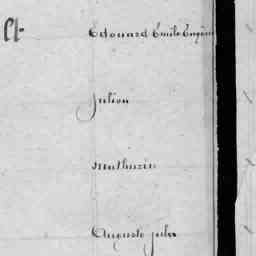 Edouard Emile Eugène
Julien
Mathurin
Auguste Jules